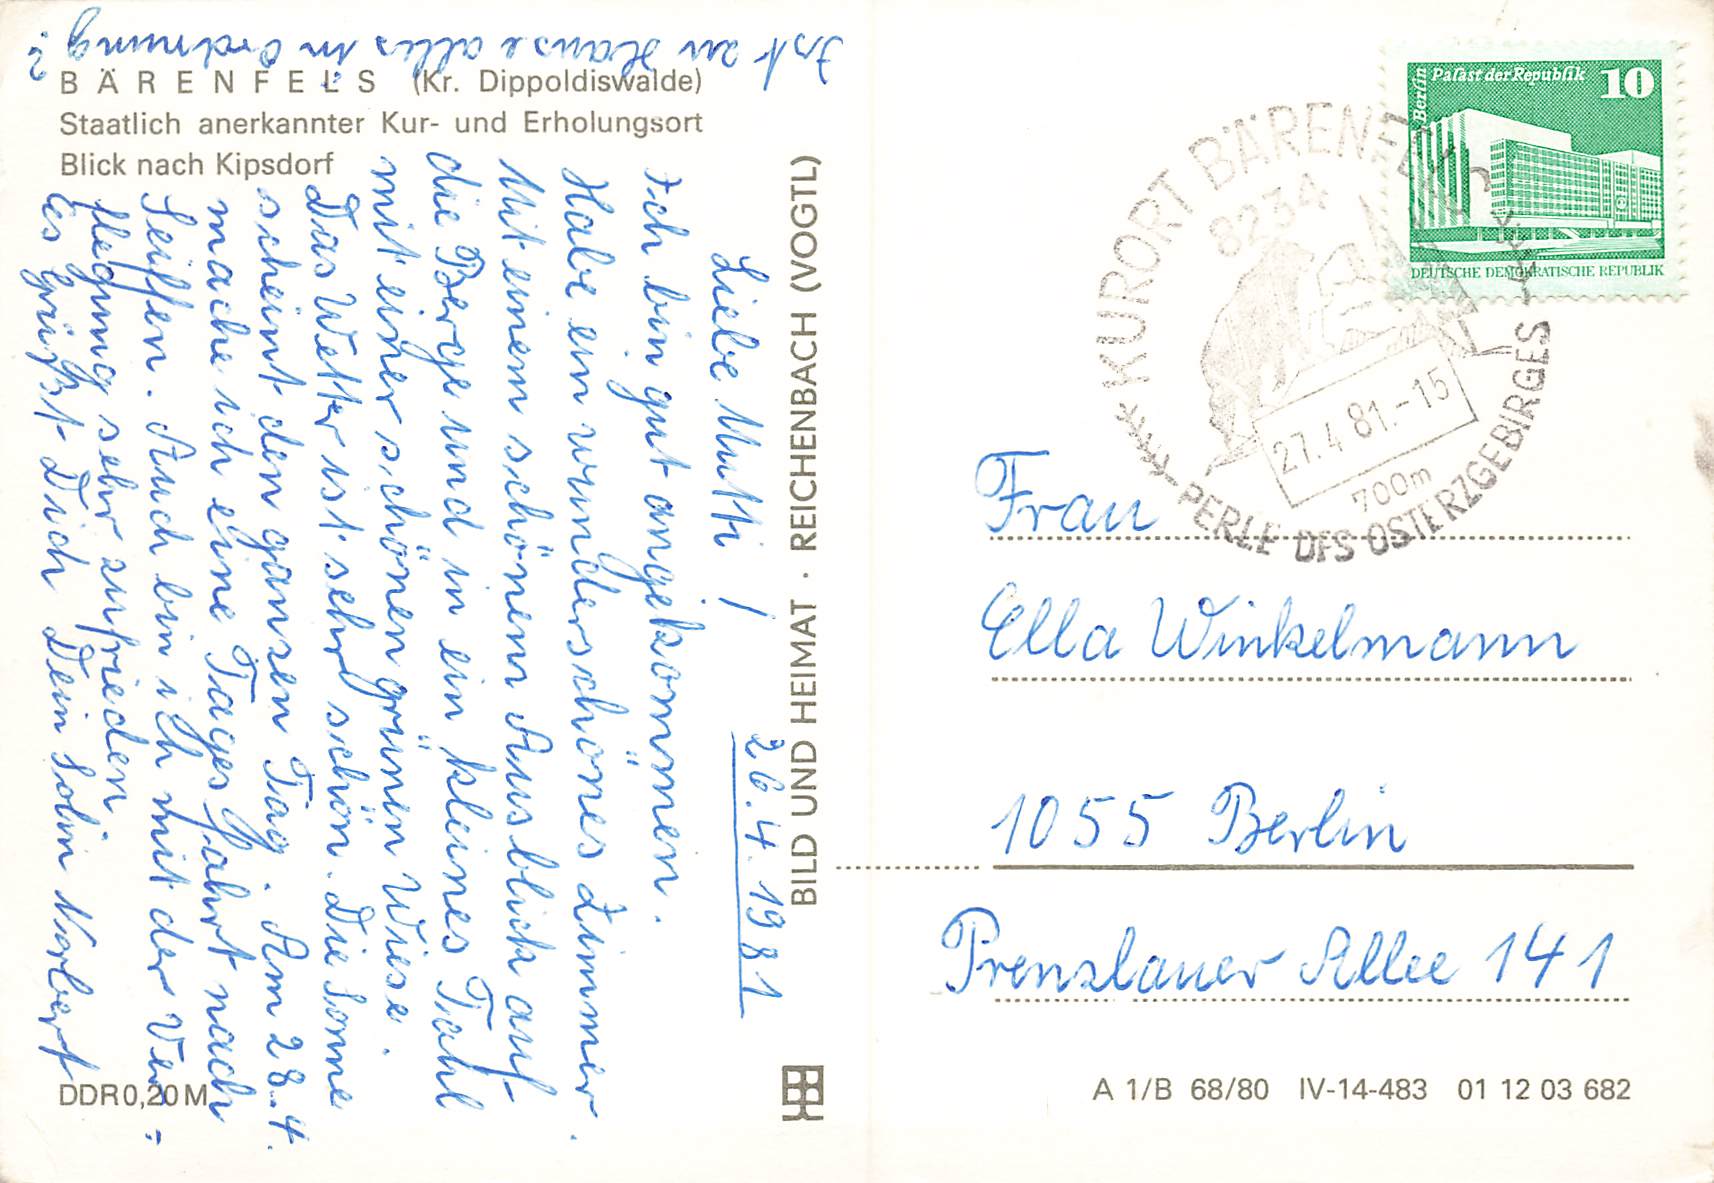 BÄRENFELS (Kr. Dippoldiswalde)
Staatlich anerkannter Kur- und Erholungsort
Blick nach Kipsdorf
26.4.1981
Liebe Mutti!
Ich bin gut angekommen.
Habe ein wunderschönes Zimmer.
Mit einem schönen Ausblick auf
die Berge und in ein kleines Tahl
mit einer schönen grünen Wiese.
Das Wetter ist sehr schön. Die Sonne
scheint den ganzen Tag. Am 28.4.
mache ich eine Tagesfahrt nach
Seiffen. Auch bin ich mit der Ver-
flegung sehr zufrieden.
Es grüßt Dich Dein Sohn Norbert
Ist zu Hause alles in Ordnung?
BILD UND HEIMAT · REICHENBACH (VOGTL)
DDR 0,20 M
Berlin
Palast der Republik
10
DEUTSCHE DEMOKRATISCHE REPUBLIK
KURORT BÄRENFELS
8234
27.4.81.-15
700m
PERLE DES OSTERZGEBIRGES
Frau
Ella Winkelmann
1055 Berlin
Prenzlauer Allee 141
A 1/B 68/80 IV-14-483 01 12 03 682